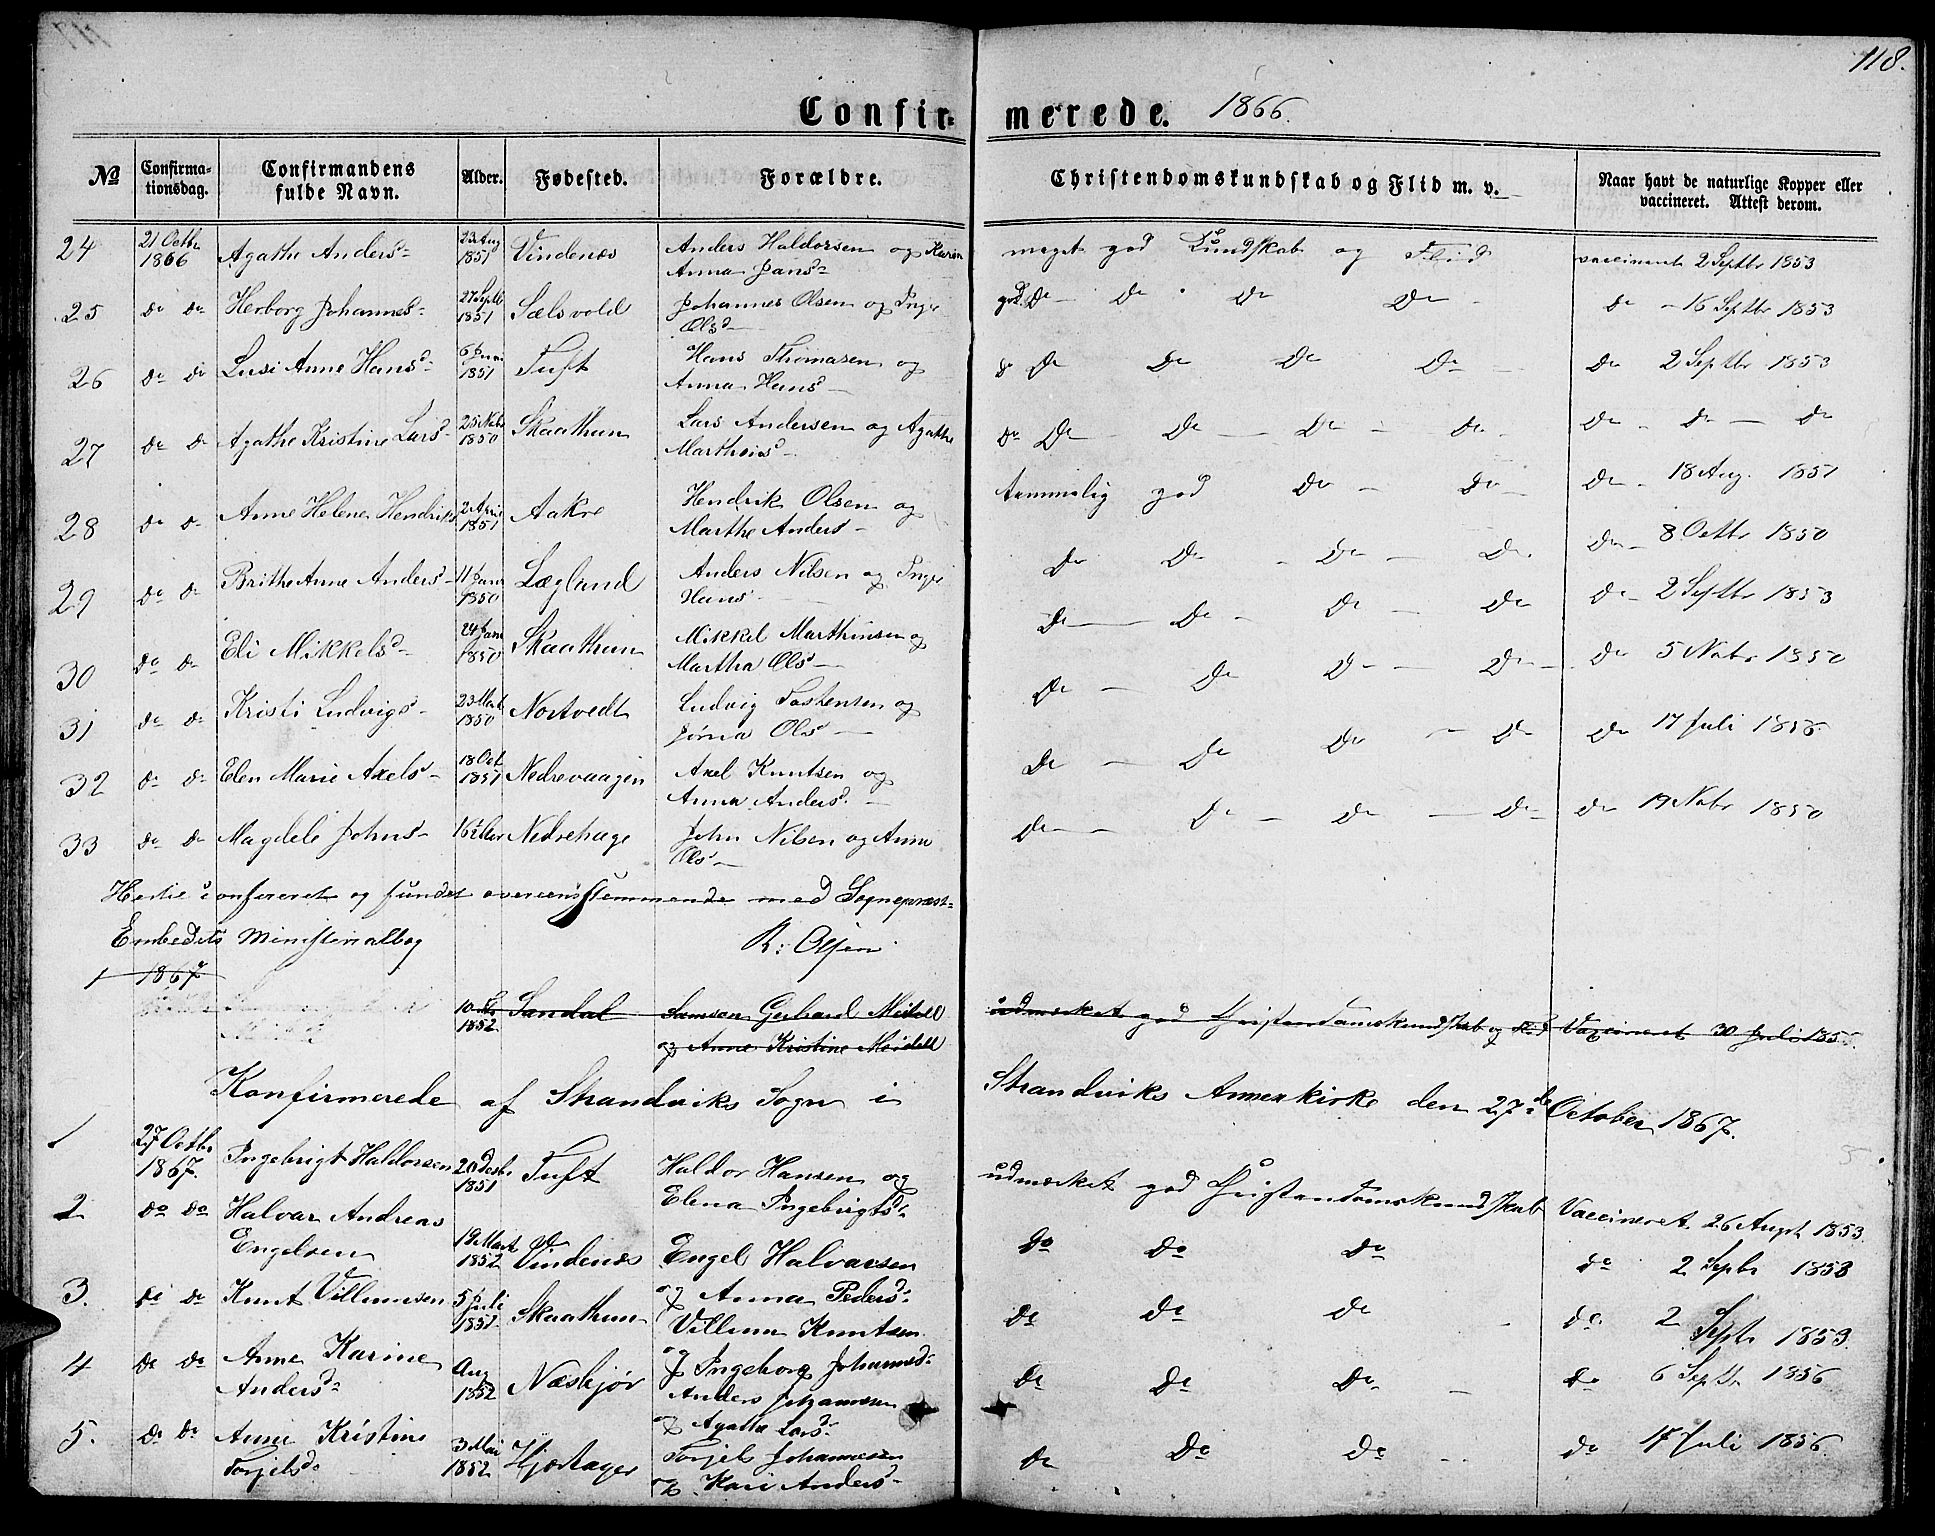 118.
Confirmerede. 1866.
No Confirmationsdag. Confirmandens fulde Navn. Alder. Fødested. Forældre. Christendomskundskab og Flid m. v. Naar havt de naturlige Kopper eller vaccineret. Attest derom.
24 21 Octbr 1866 Agathe Andersd- 23 Aug 1851 Vindenæs Anders Haldorsen og Karen Anna Jansd- meget god Kundskab og Flid vaccineret 2 Septbr 1853
25 do do Herborg Johannesd- 27 Septb 1851 Sælsvold Johannes Olsen og Inge Olsd- god do - do - do do - do - 16 Septbr 1853
26 do do Lusi Anne Hansd- 1851 Tuft Hans Thomasen og Anna Hansd- do do do do - do 2 Septbr 1853
27 do do Agathe Kristine Larsd- 25 Nobr 1850 Skaathun Lars Andersen og Agathe Martheisd- do do - do - do - do - do - do - do
28 do do Anne Helene Hendriksd 2 April 1851 Aakre Hendrik Olsen og Marthe Andersd- temmelig god do - do - do - 18 Aug. 1851
29 do do Brithe Anne Andersd- 11 Janr 1850 Lægland Anders Nilsen og Inge Hansd- do do - do - do do - 8 Octbr 1850
30 do do Eli Mikkelsd- 24 Janr 1850 Skaathun Mikkel Marthinsen og Martha Olsd- do - do - do - do do - 2 Septbr 1853
31 do do Kristi Ludvigsd- 23 Mart 1850 Nortvedt Ludvig Tostensen og Jørna Olsd- do - do do - do - do 5 Nobr 1850
32 do do Elen Marie Axelsd- 18 Oct 1851 Nedrevaagen Axel Knutsen og Anna Andersd- do - do do - do do 17 Juli 1856.
33 do do Magdeli Johnsd- 16 Nedrehage John Nilsen og Anne Olsd- do - do - do - do - do 19 Nobr 1850
confereret og fundet overeensstemmende med Sognepræst-
Embedets Ministerialbog R: Olsen
1 1867
10 1852 Sandal Samson Gerhard Meidell og Anne Kristine Meidell udmærket god Christendomskundskab og Vaccineret 30 Juli 185
Konfirmerede af Strandviks Sogn i Strandviks Annexkirke den 27de October 1867.
1 27 Octbr 1867. Ingebrigt Haldorsen 20 Desbr. 1851 Tuft Haldor Hansen og Elena Ingebrigtsd- udmærket god Christendomskundskab Vaccineret 26 Augt 1853.
2 do do Halvar Andreas Engelsen 19 Mart 1852 Vindenæs Engel Halvarsen og Anna Pedersd- do do do do 2 Sepbr 1853
3. do do Knut Villumsen 5 Juli 1851 Skaathun Villum Knutsen og Ingeborg Johannesd- do do do do 2 Septr 1853.
4 do do Anne Karine Andersd- Aug 1852 Næskjør Anders Johannesen og Agatha Larsd- do do do - do 6 Septbr 1856
5. do do Anne Kristine Torjelsd- 3 Mai 1852 Hjortager Torjels Johannesen og Kari Andersd- do do do - do 17 Juli 1856.